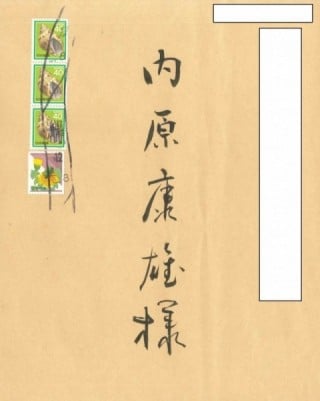 内原康雄様